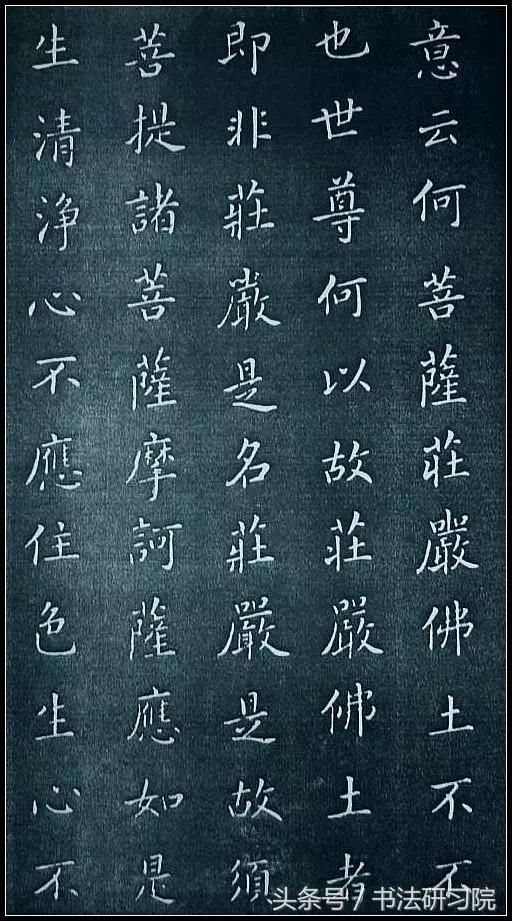 意云何菩薩莊嚴佛土不不
也世尊何以故莊嚴佛土者
即非莊嚴是名莊嚴是故須
菩提諸菩薩摩訶薩應如是
生清淨心不應住色生心不
头条号 / 书法研习院